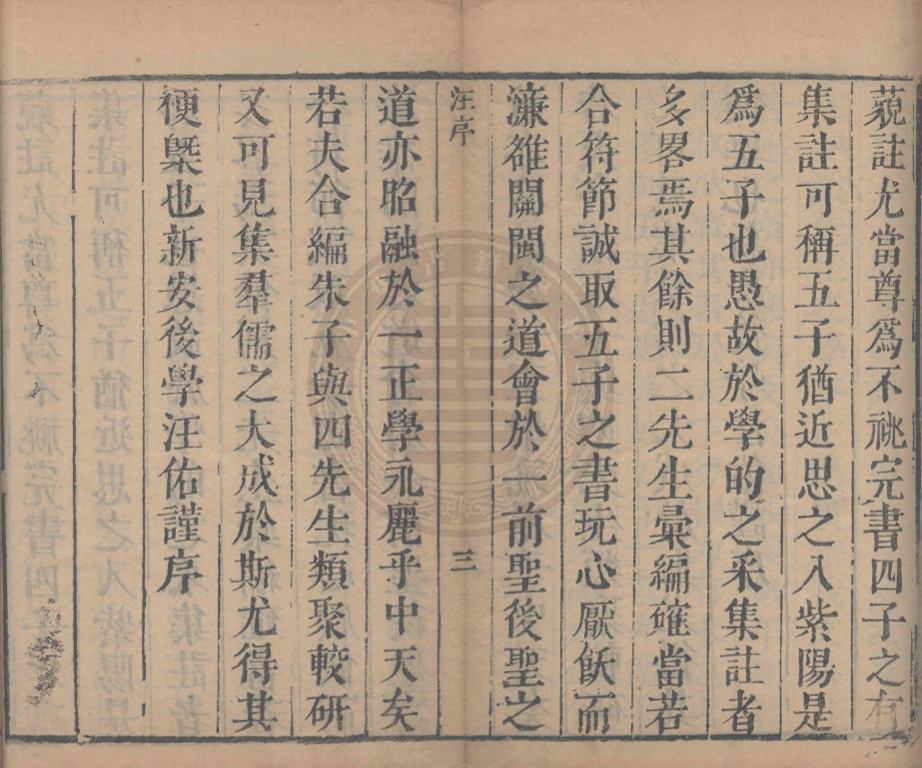 藐註尤當尊爲不祧完書四子之有
集註可稱五子猶近思之入紫陽是
爲五子也愚故於學的之采集註者
多畧焉其餘則二先生彙編確當若
合符節誠取五子之書玩心厭飫而
濂雒關閩之道會於一前聖後聖之
汪序
三
道亦昭融於一正學永麗乎中天矣
若夫合編朱子與四先生類聚較研
又可見集羣儒之大成於斯尤得其
梗槩也新安後學汪佑謹序